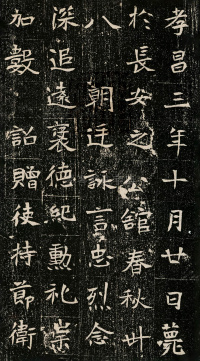 孝昌三年十月廿日薨
於長安之公館春秋卅
八 朝廷詠言忠烈念
深追遠褒德紀勳礼崇
加數 詔贈使持節衛